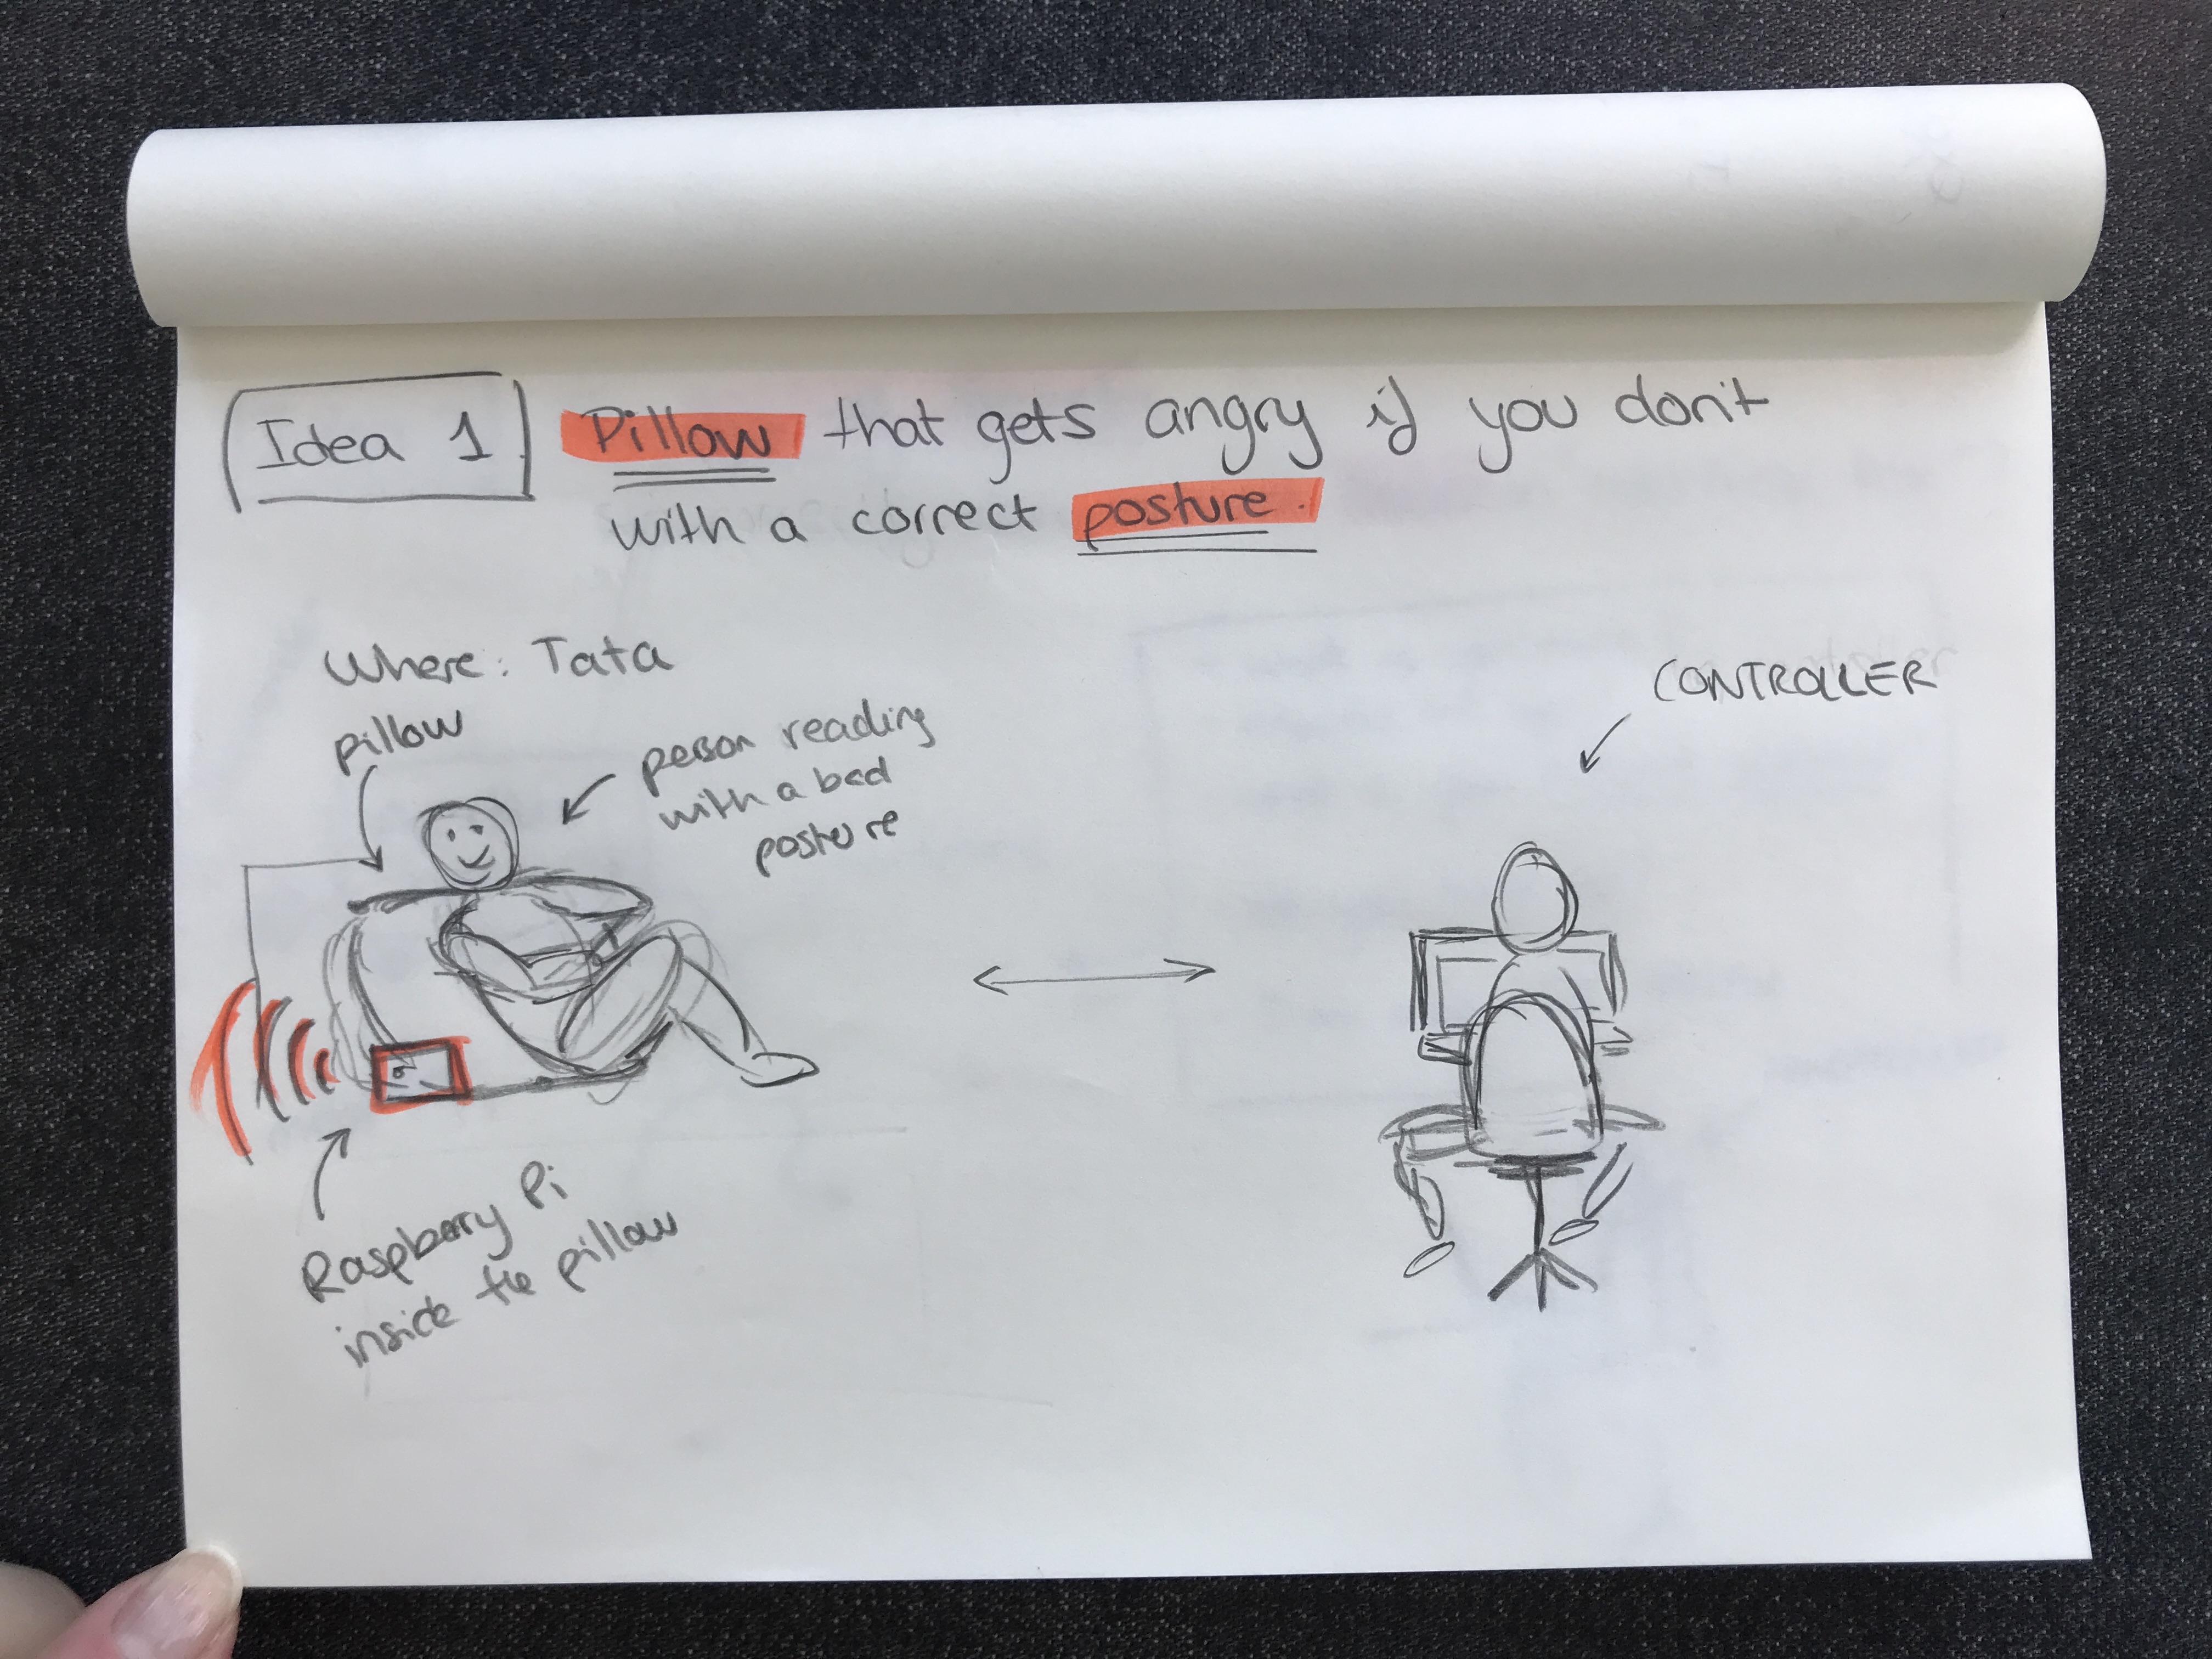 Idea 1 Pillow that gets angry if you don't
with a correct posture.
Where: Tata
pillow
person reading
with a bad
posture
CONTROLLER
Raspberry Pi
inside the pillow